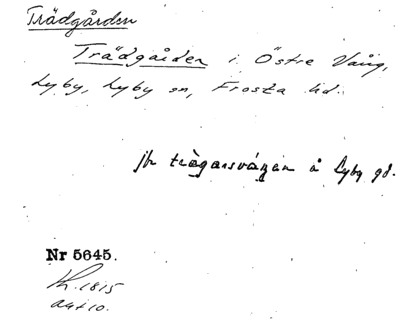 Trädgården
Trädgården i Östre Vång,
Lyby, Lyby sn, Frosta hd.
jfr trägarsvången å Lyby gd.
Nr 5645.
Lk. 1815
akt 10.